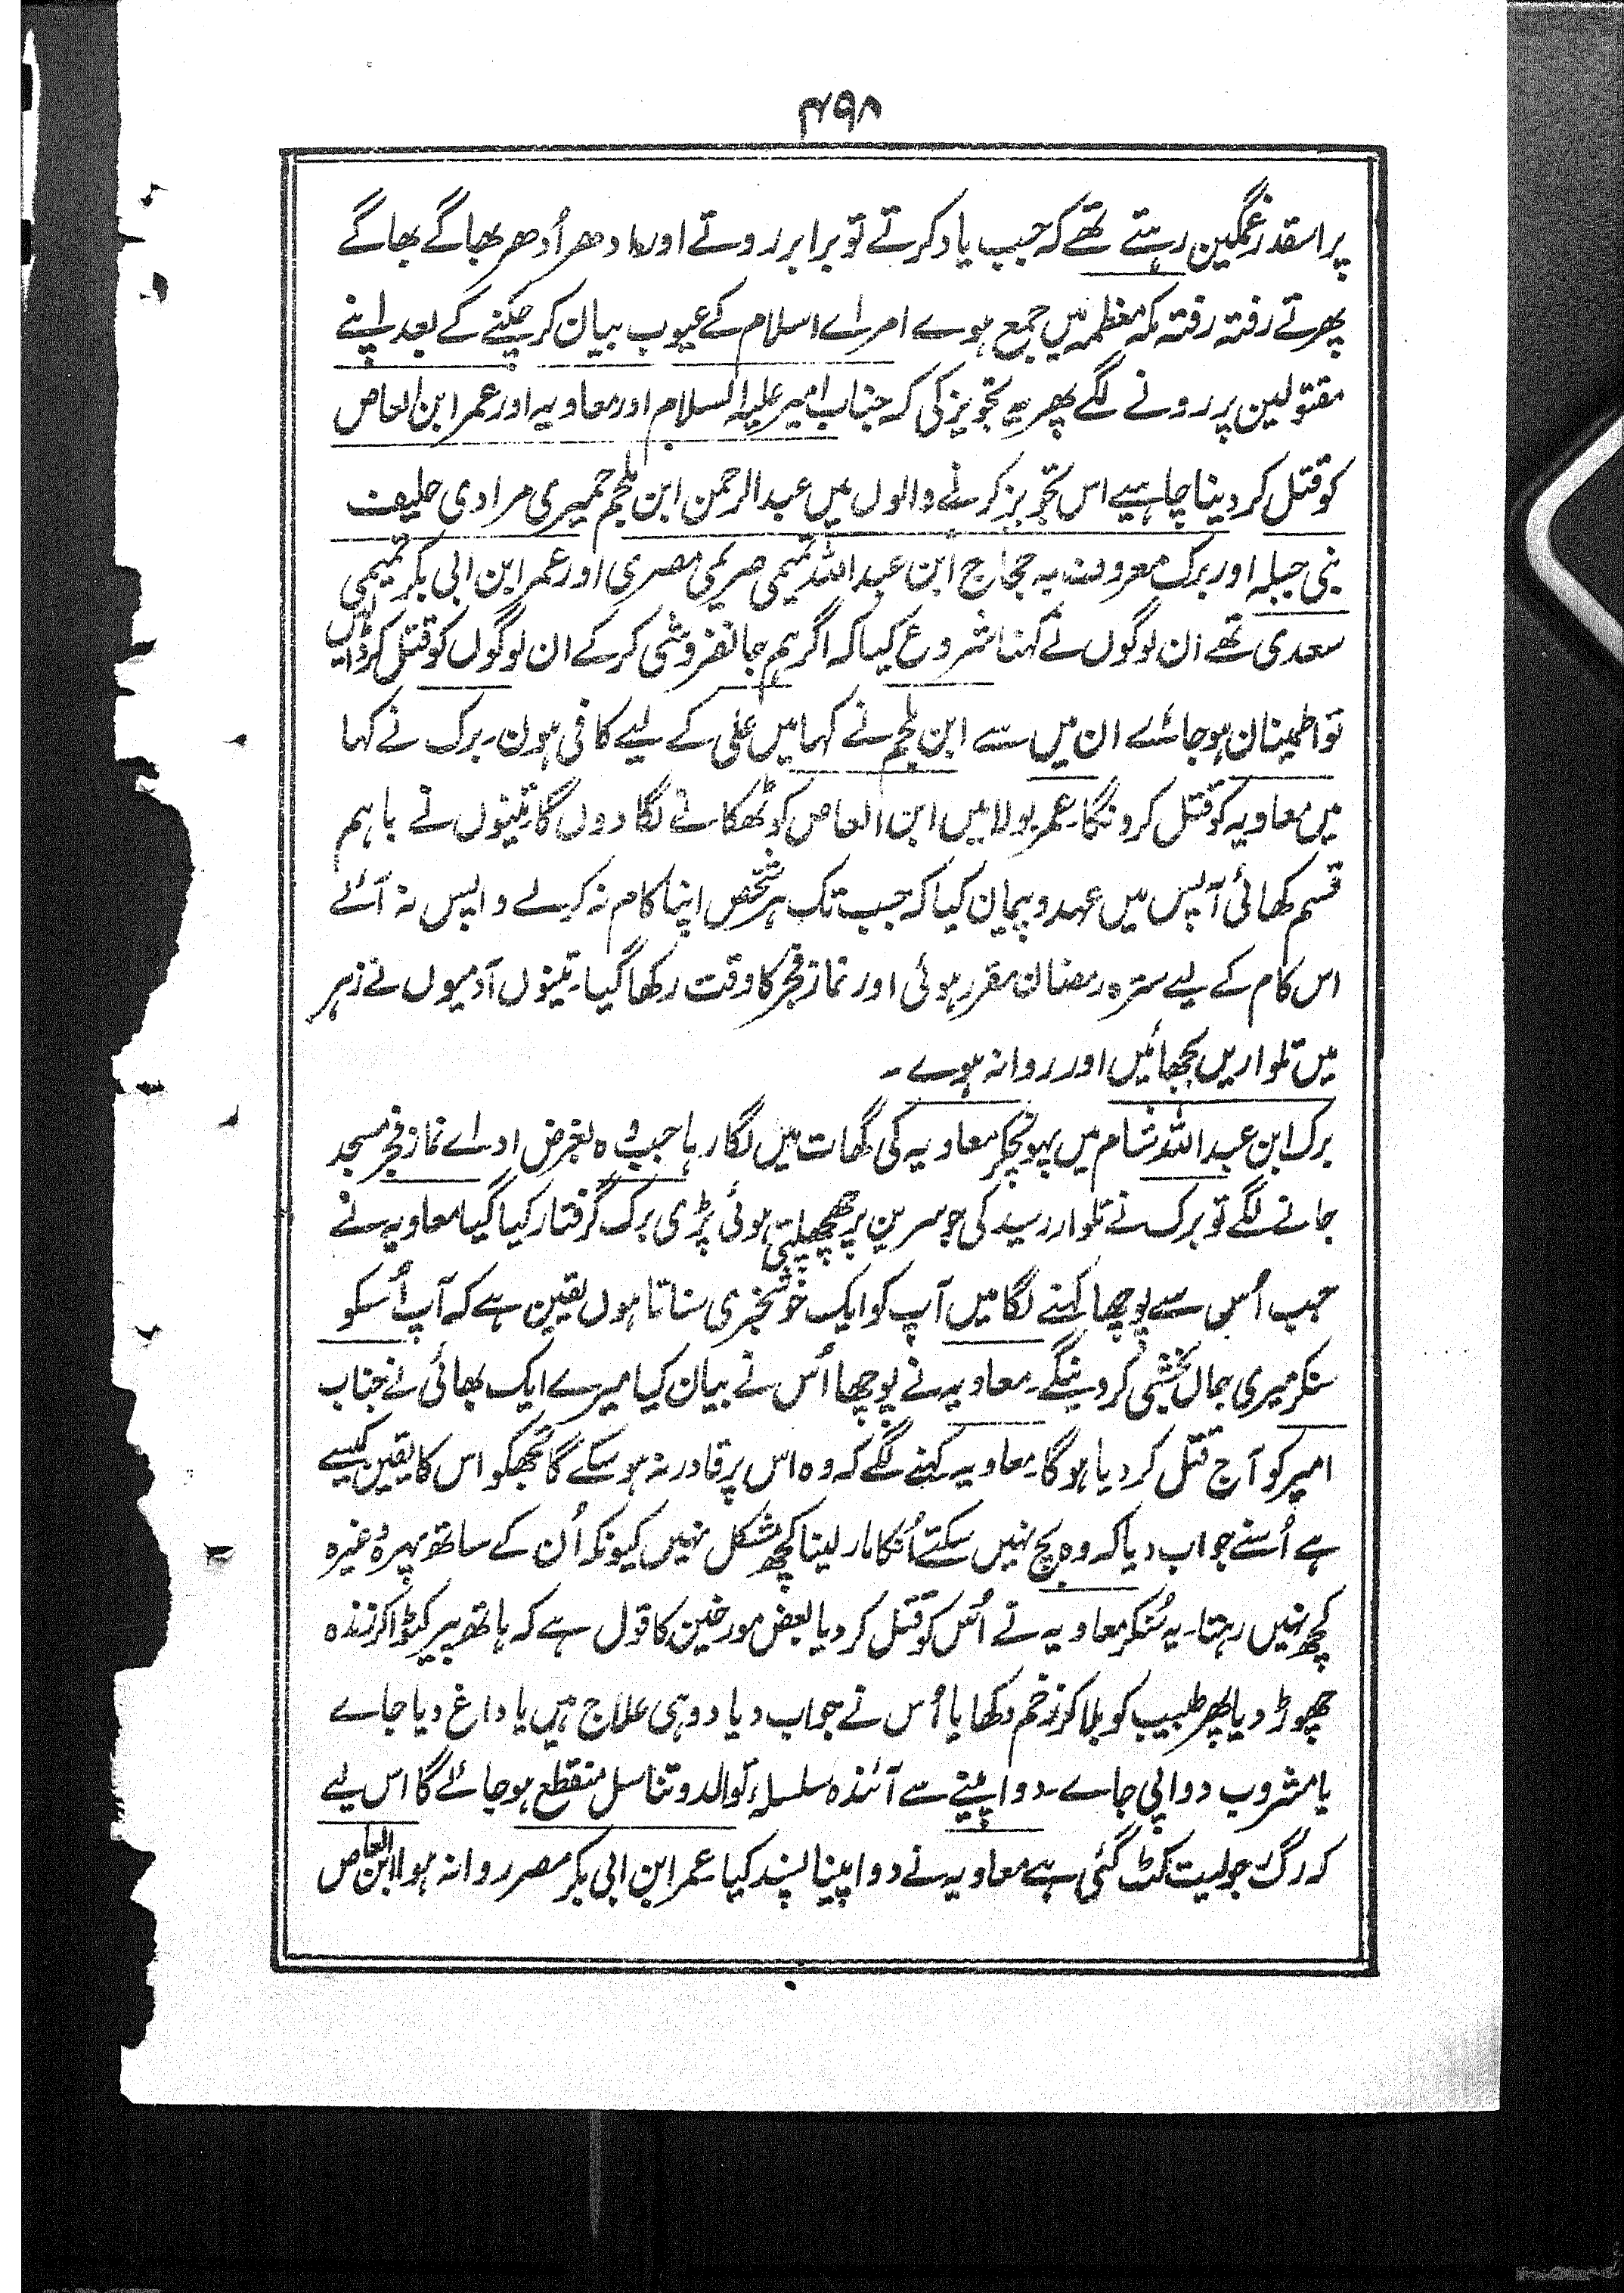 ۴۹۸
پر اسقدر غمگین رہتے تھے کہ جب یاد کرتے تو برابر روتے اور ادھر اُدھر بھاگے بھاگے
پھرتے رفتہ رفتہ مکہ معظمہ میں جمع ہوے امراے اسلام کے عیوب بیان کر چکنے کے بعد اپنے
مقتولین پر رونے لگے پھر یہ تجویز کی کہ جناب امیر علیہ السلام اور معاویہ اور عمر ابن العاص
کو قتل کر دینا چاہیے اس تجویز کرنے والوں میں عبدالرحمن ابن ملجم حمیری مرادی حلیف
بنی جبلہ اور برک معروف بہ حجاج ابن عبداللہ تمیمی صریمی مصری اور عمر ابن ابی بکر تمیمی
سعدی تھے ان لوگوں نے کہنا شروع کیا کہ اگر ہم جانفروشی کر کے ان لوگوں کو قتل کر ڈالیں
تو اطمینان ہو جائے ان میں سے ابن ملجم نے کہا میں علی کے لیے کافی ہون۔ برک نے کہا
میں معاویہ کو قتل کرونگا۔ عمر بولا میں ابن العاص کو ٹھکانے لگا دوں گا۔ تینوں نے باہم
قسم کھائی آپس میں عہد و پیمان کیا کہ جب تک ہر شخص اپنا کام نہ کرلے واپس نہ آئے
اس کام کے لیے سترہ رمضان مقرر ہوئی اور نماز فجر کا وقت رکھا گیا۔ تینوں آدمیوں نے زہر
میں تلواریں بجھائیں اور روانہ ہوے۔
برک ابن عبداللہ شام میں پہونچکر معاویہ کی گھات میں لگا رہا جب وہ بغرض اداے نماز فجر مسجد
جانے لگے تو برک نے تلوار رسید کی جو سرین پر چھچھلتی ہوئی پڑی برک گرفتار کیا گیا معاویہ نے
جب اُس سے پوچھا کہنے لگا میں آپ کو ایک خوشخبری سناتا ہوں یقین ہے کہ آپ اُسکو
سنکر میری جان بخشی کر دینگے۔ معاویہ نے پوچھا اُس نے بیان کیا میرے ایک بھائی نے جناب
امیر کو آج قتل کر دیا ہوگا۔ معاویہ کہنے لگے کہ وہ اس پر قادر نہ ہو سکے گا تجھکو اس کا یقین کیسے
ہے اُسنے جواب دیا کہ وہ بچ نہیں سکتے اُنکا مار لینا کچھ مشکل نہیں کیونکہ اُن کے ساتھ پہرہ وغیرہ
کچھ نہیں رہتا۔ یہ سُنکر معاویہ نے اُس کو قتل کر دیا بعض مورخین کا قول ہے کہ ہاتھ پیر کٹوا کر زندہ
چھوڑ دیا پھر طبیب کو بلا کر زخم دکھایا اُس نے جواب دیا دو ہی علاج ہیں یا داغ دیا جاے
یا مشروب دوا پی جاے۔ دوا پینے سے آئندہ سلسلہ توالد و تناسل منقطع ہو جائے گا اس لیے
کہ رگ رجولیت کٹ گئی ہے معاویہ نے دوا پینا پسند کیا عمر ابن ابی بکر مصر روانہ ہوا ابن العاص